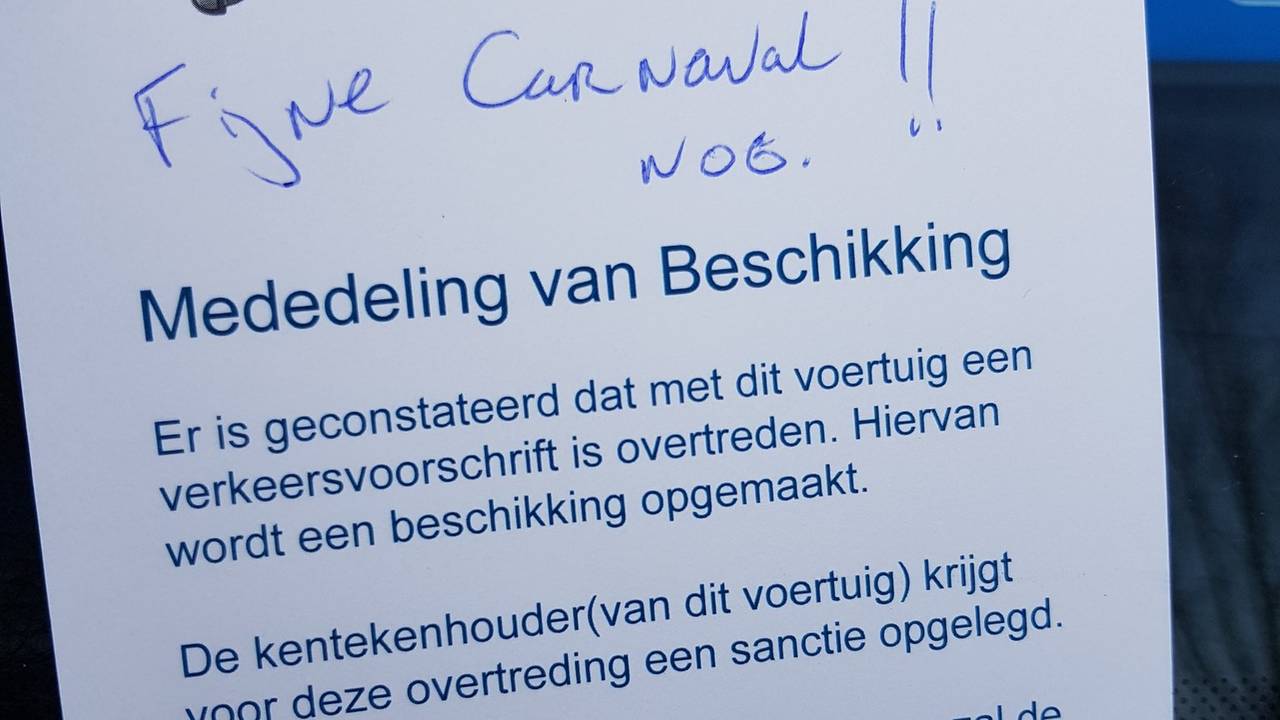 Fijne Carnaval !!
nog.
Mededeling van Beschikking
Er is geconstateerd dat met dit voertuig een
verkeersvoorschrift is overtreden. Hiervan
wordt een beschikking opgemaakt.
De kentekenhouder(van dit voertuig) krijgt
voor deze overtreding een sanctie opgelegd.
de